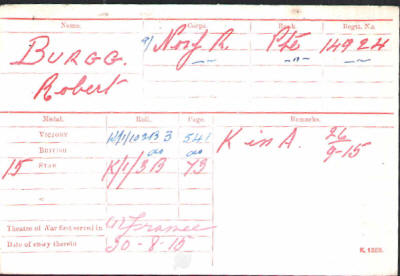 Name. Corps. Rank. Regtl. No.
BURGG. 9/ Norf R. Pte 14924
Robert
Medal. Roll. Page. Remarks.
VICTORY K/1/102B3 541 K in A. 26/9-15
BRITISH do do
15 STAR K/1/3B 73
Theatre of War first served in (1) France
Date of entry therein 30-8-15
K. 1380.